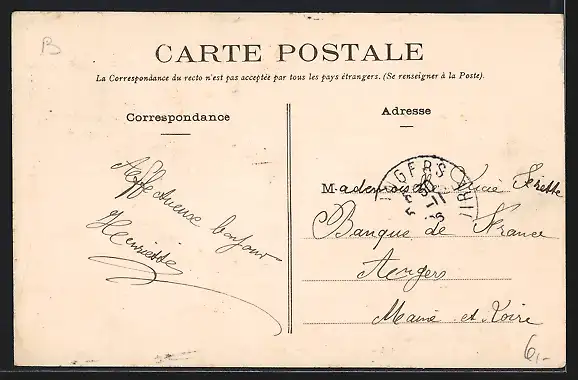 B
CARTE POSTALE
La Correspondance du recto n'est pas acceptée par tous les pays étrangers. (Se renseigner à la Poste).
Correspondance
Adresse
Affectueux bonjour
Henriette
ANGERS
Mademoiselle
Banque de France
Angers
Maine et Loire
6,-